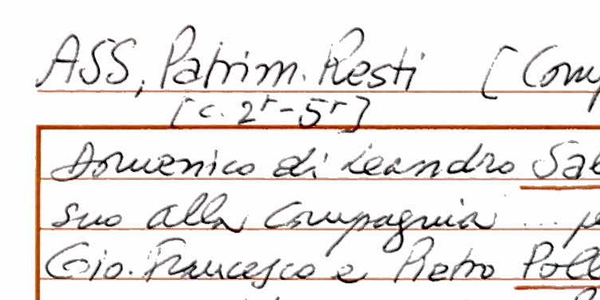 ASS, Patrim. Resti [Comp
[c. 2r-5r]
Domenico di Leandro Sal
suo alla Compagnia ... p
Gio. Francesco e Pietro Poll